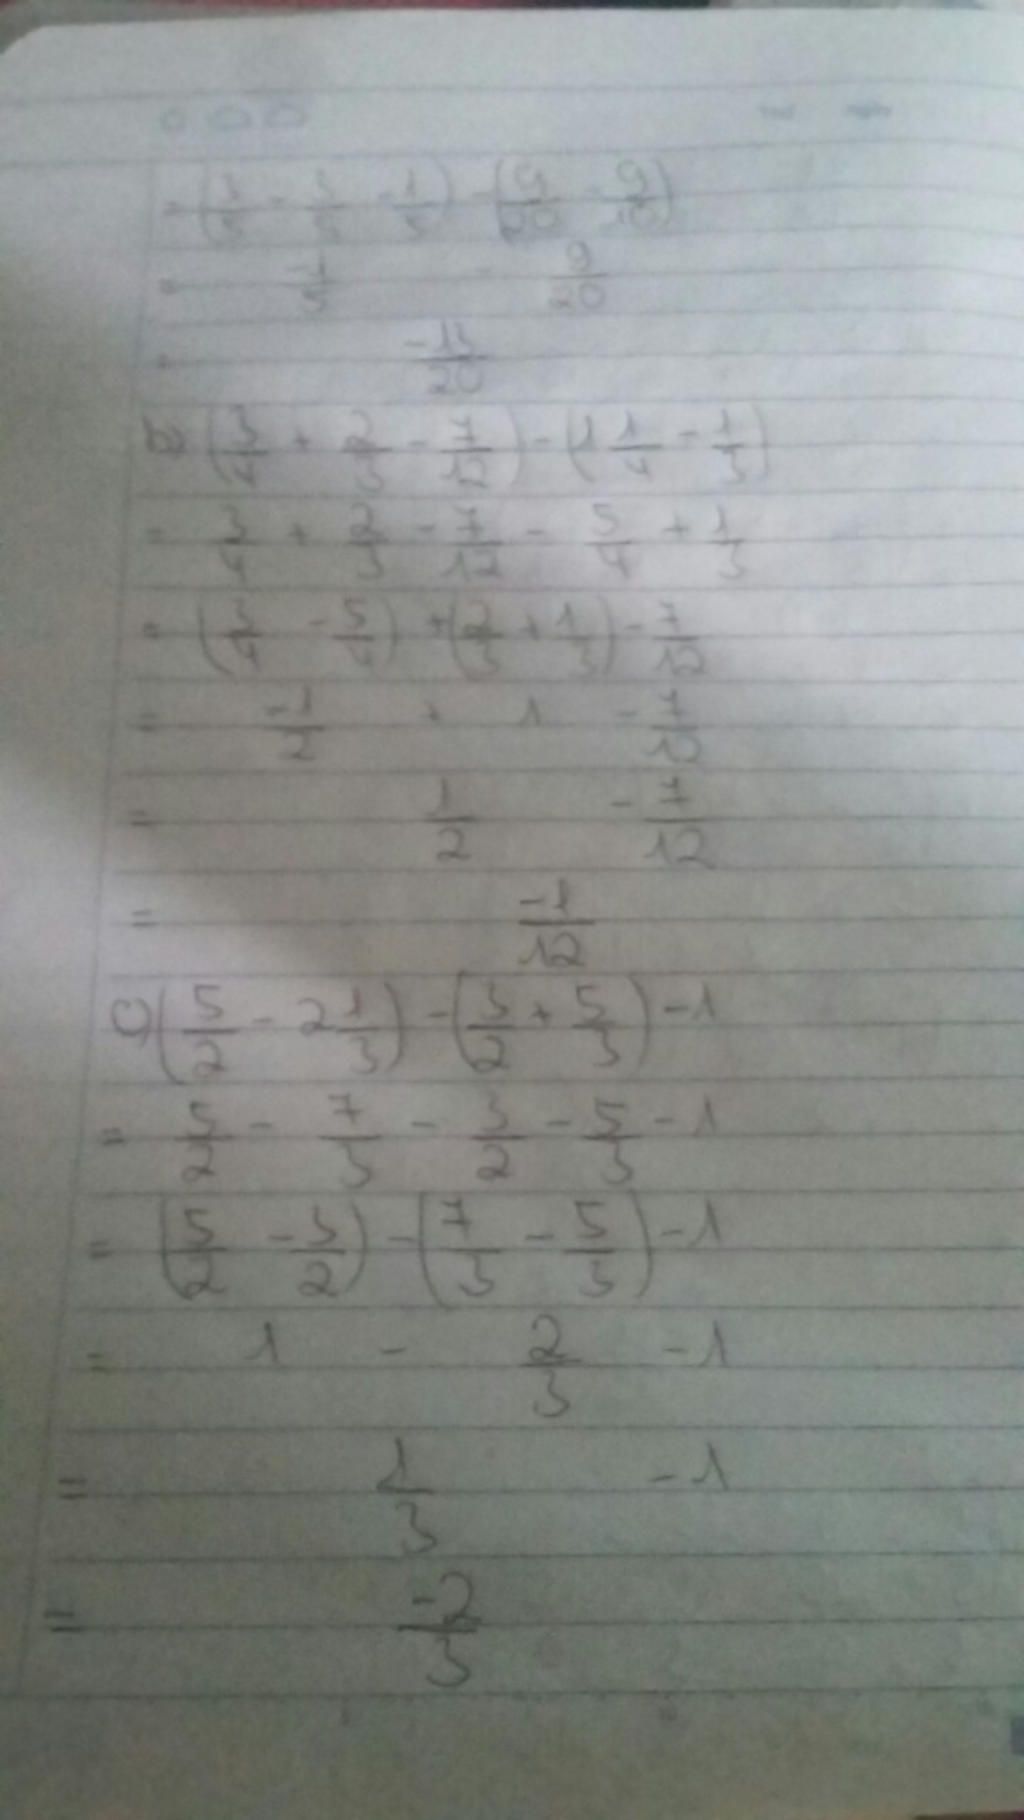 = -1/5 - 9/20
= -13/20
b) (3/4 + 2/3 - 7/12) - (1 1/4 - 1/3)
= 3/4 + 2/3 - 7/12 - 5/4 + 1/3
= (3/4 - 5/4) + (2/3 + 1/3) - 7/12
= -1/2 + 1 - 7/12
= 1/2 - 7/12
= -1/12
c) (5/2 - 2 1/3) - (3/2 + 5/3) - 1
= 5/2 - 7/3 - 3/2 - 5/3 - 1
= (5/2 - 3/2) - (7/3 - 5/3) - 1
= 1 - 2/3 - 1
= 1/3 - 1
= -2/3